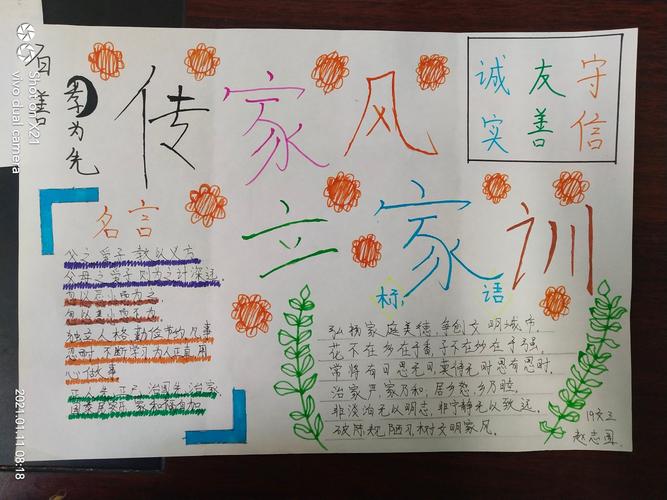 百善
孝为先
传家风
立家训
诚实
友善
守信
名言
父之爱子,教以义方
父母之爱子则为之计深远.
勿以恶小而为之
勿以善小而不为.
独立人格 勤俭节约 凡事
忍时 不断学习 为人正直 用
心做事
标语
弘扬家庭美德,争创文明城市.
花不在多在于香,子不在多在于强
常将有日思无日,莫待无时思有时.
治家严,家乃和;居乡恕,乡乃睦.
非淡泊无以明志,非宁静无以致远.
破陈规陋习,树文明家风.
赵志国
Shot on X21
vivo dual camera
2021.01.11 08:18